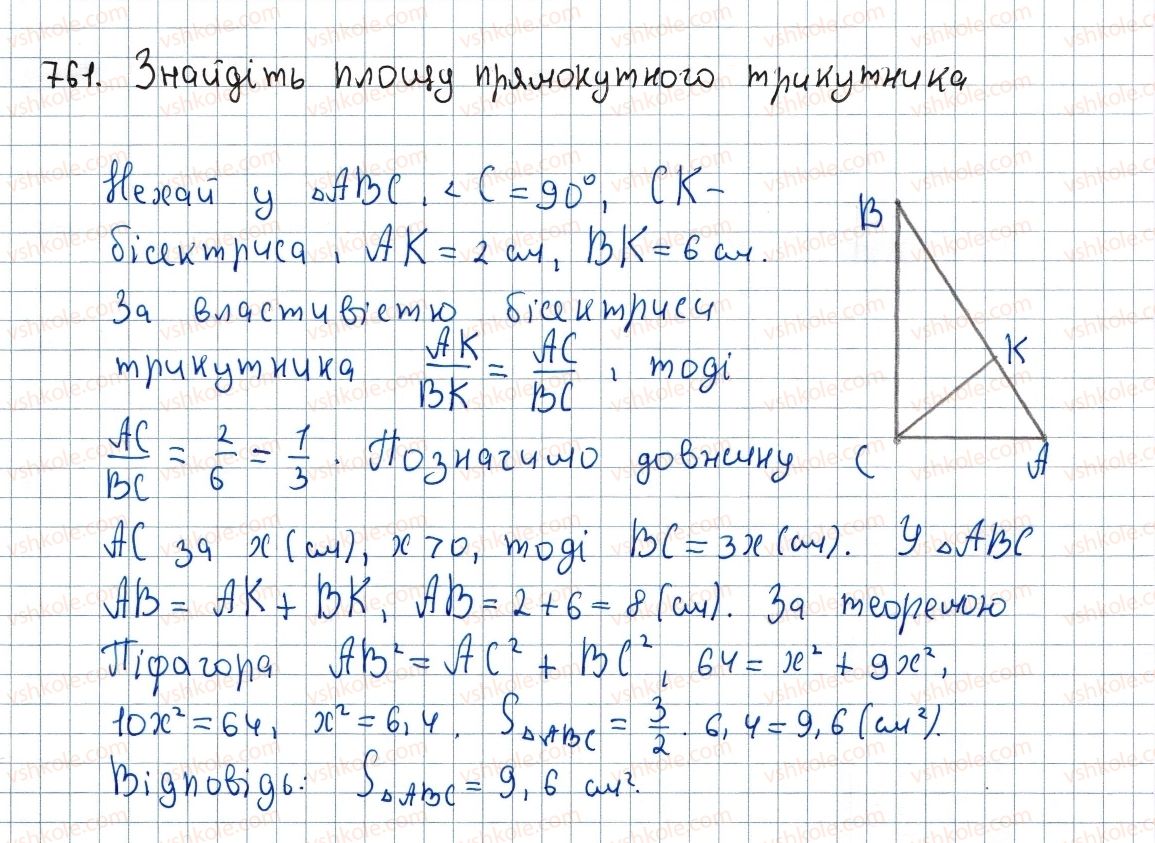 761. Знайдіть площу прямокутного трикутника
Нехай у △ABC, ∠C = 90°, CK -
бісектриса, AK = 2 см, BK = 6 см.
За властивістю бісектриси
трикутника AK/BK = AC/BC, тоді
AC/BC = 2/6 = 1/3. Позначимо довжину
AC за x (см), x > 0, тоді BC = 3x (см). У △ABC
AB = AK + BK, AB = 2 + 6 = 8 (см). За теоремою
Піфагора AB² = AC² + BC², 64 = x² + 9x²,
10x² = 64, x² = 6,4. S△ABC = 3/2 · 6,4 = 9,6 (см²).
Відповідь: S△ABC = 9,6 см².
B
K
C
A
vshkole.com